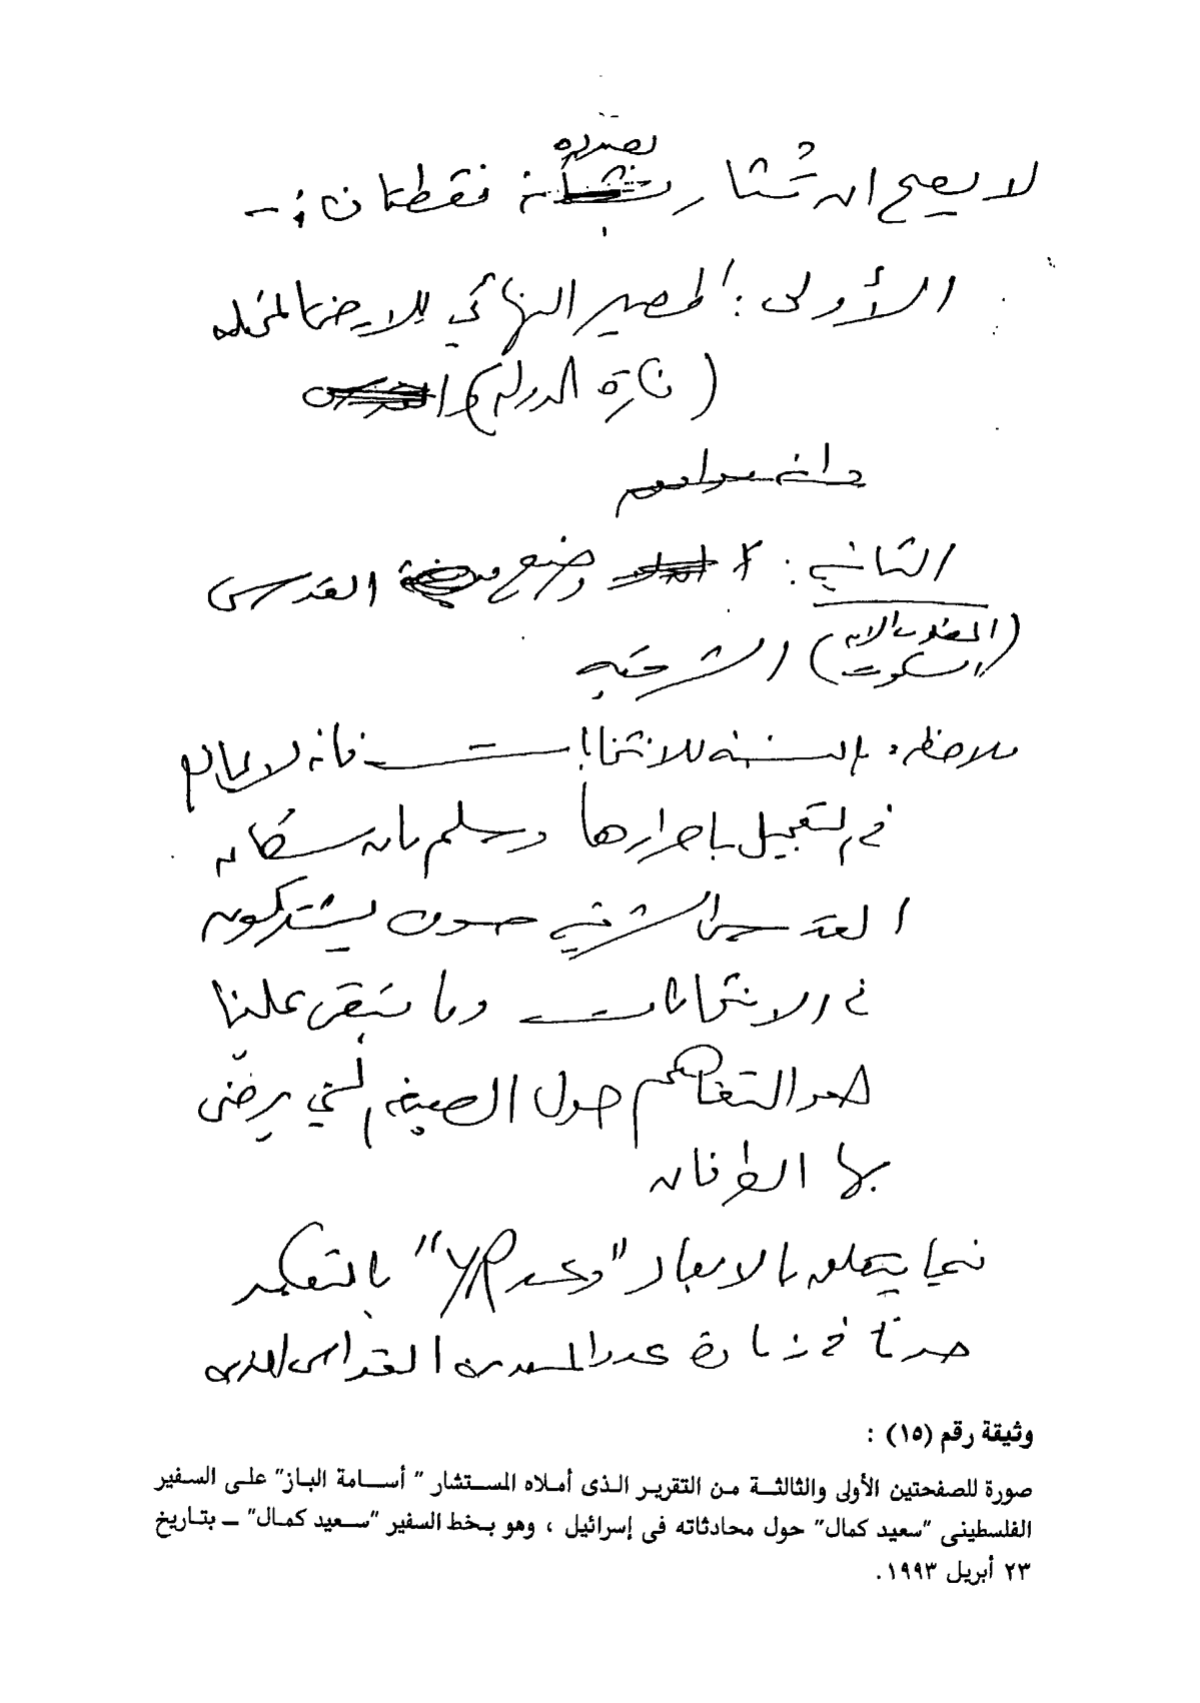 لا يصح ان تُثار بصدده نقطتان :-
الأولى : المصير النهائي للارض المحتله
( فكرة الدولة )
الثانية : وضع القدس
( المطلوب الان السكوت ) الشرقيه
ملاحظه : بالنسبه للانتخابات فانه لا يمانع
في التعجيل باجرارها وسلم بان سكان
القدس الشرقيه سوف يشتركون
في الانتخابات وما تبقى علينا
هو التفاهم حول الصيغه التي يرضى
بها الطرفان
فيما يتعلق بالابعاد "وعد YR" بالتفكير
جديًا في زيادة عدد المبعدين القدامى الذين
وثيقة رقم (١٥) :
صورة للصفحتين الأولى والثالثة من التقرير الذى أملاه المستشار " أسامة الباز" على السفير
الفلسطينى "سعيد كمال" حول محادثاته فى إسرائيل ، وهو بخط السفير "سعيد كمال" ــ بتاريخ
٢٣ أبريل ١٩٩٣.